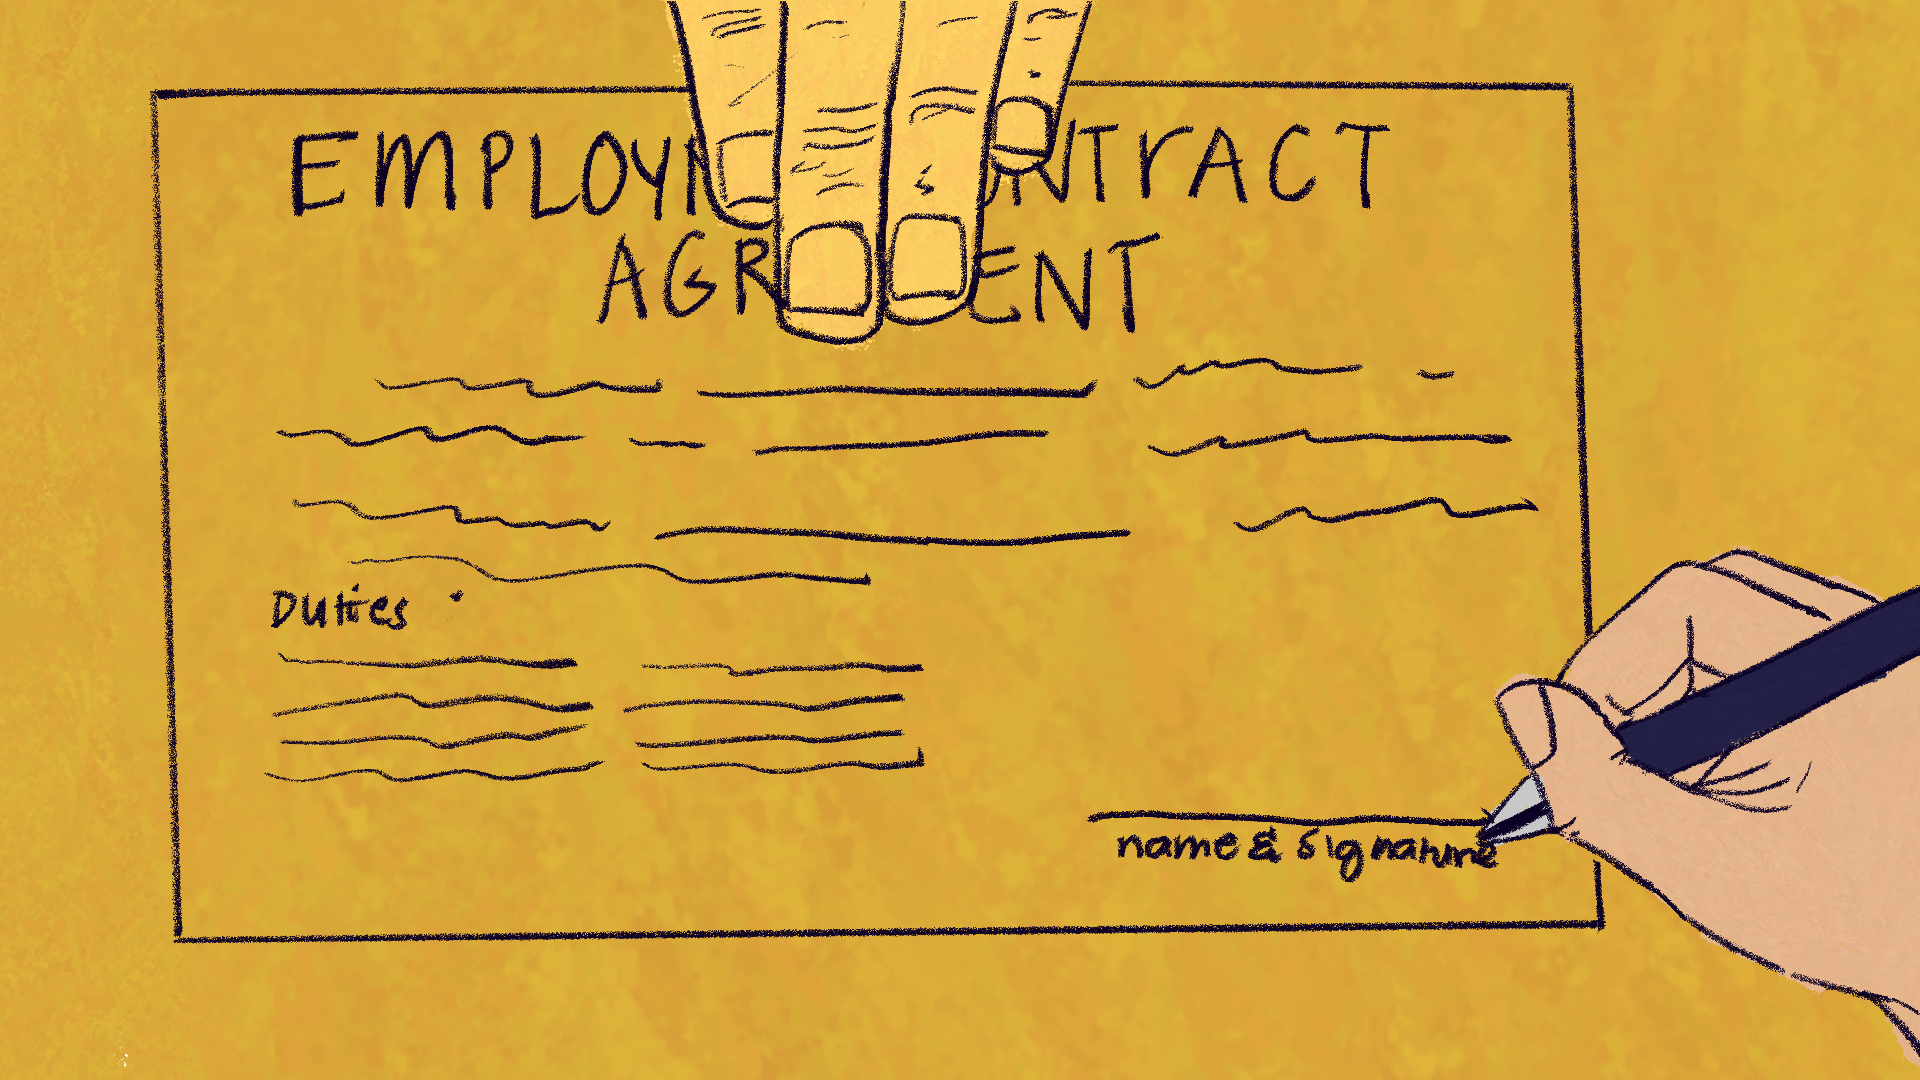 EMPLOYM NTRACT
AGR ENT
Duties
name & Signature